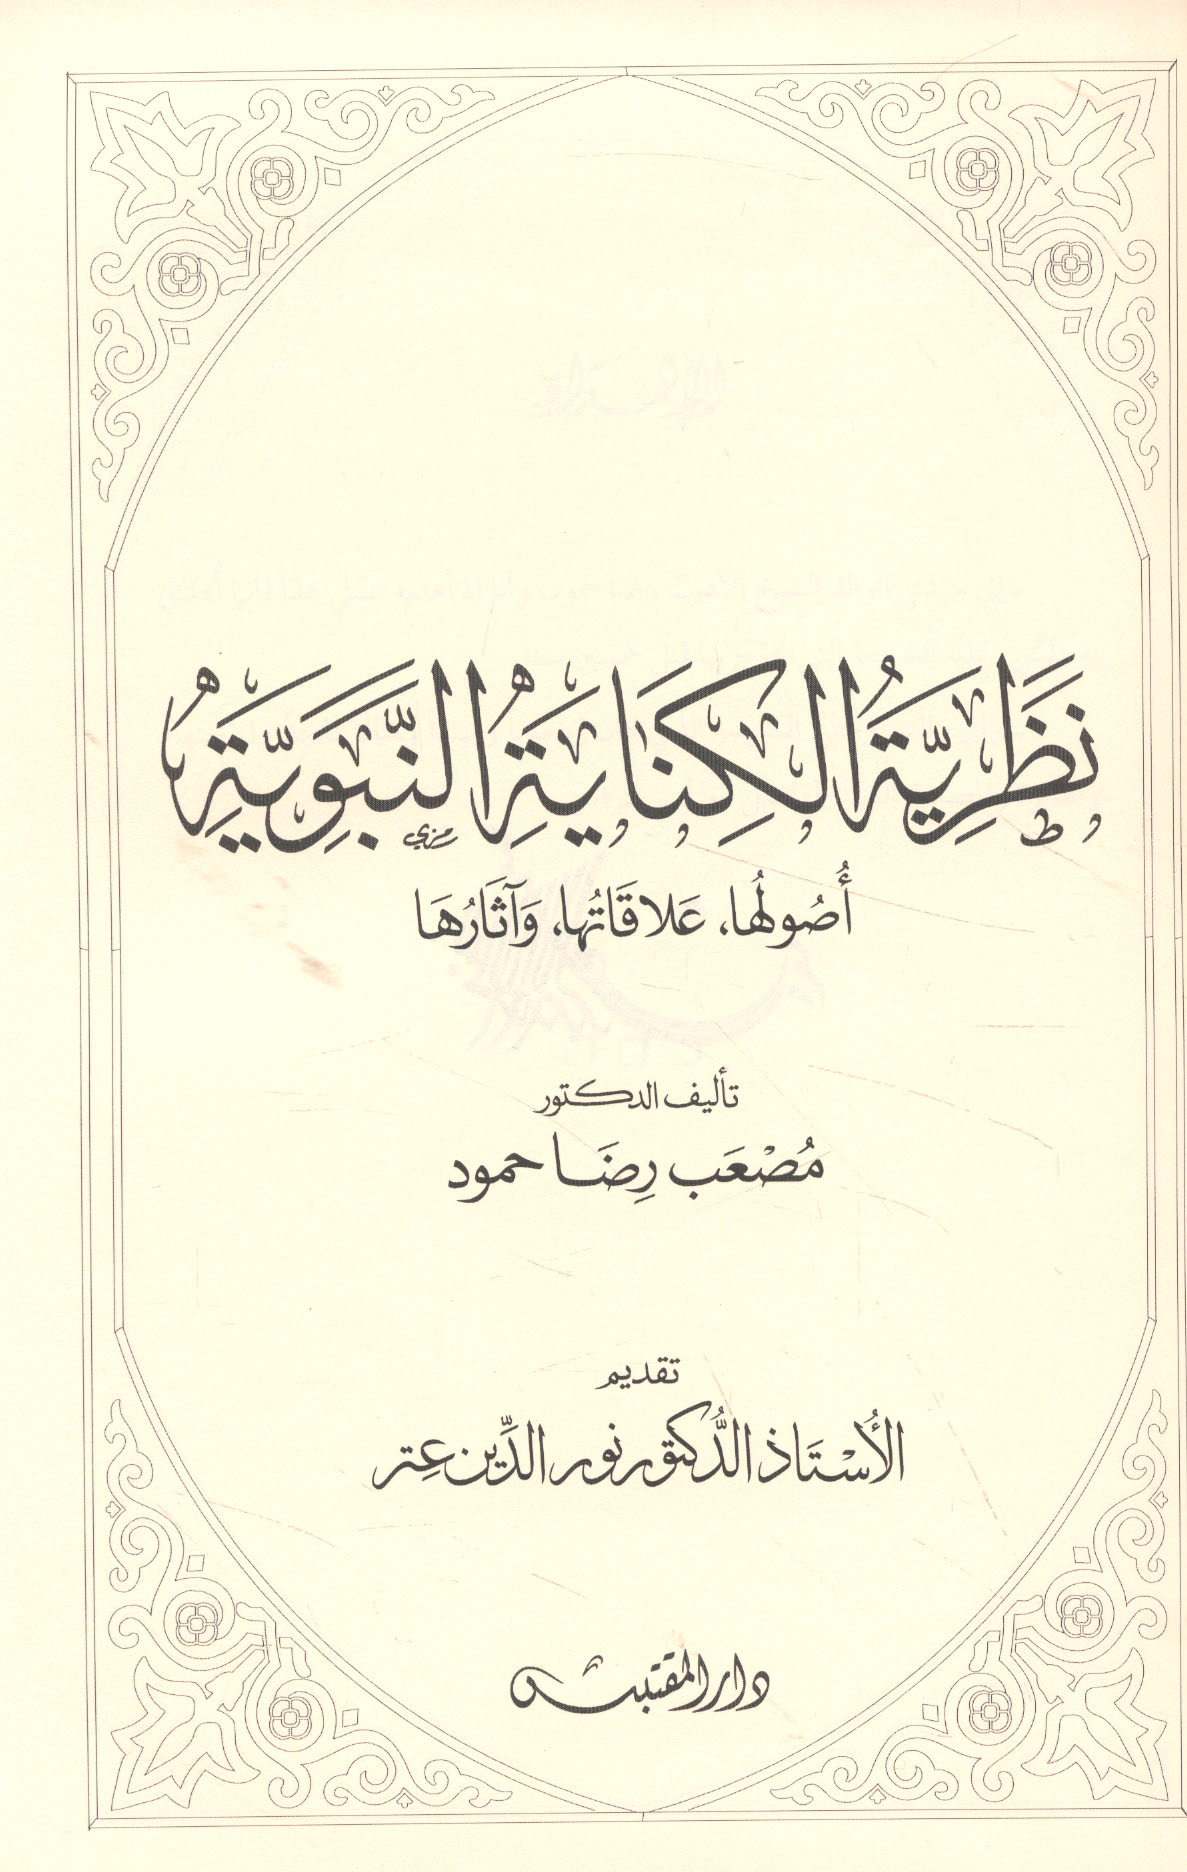 نَظَرِيَّةُ الكِنَايَةِ النَّبَوِيَّةِ
أُصُولُها، عَلاقَاتُها، وَآثَارُهَا
تأليف الدكتور
مُصْعَب رِضَا حمود
تقديم
الأُسْتَاذ الدُّكتور نور الدِّين عِتر
دار المقتبس